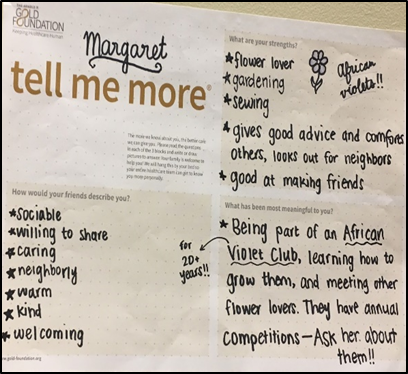 GOLD
FOUNDATION
Keeping Healthcare Human
Margaret
tell me more®
The more we know about you, the better care
we can give you. Please read the questions
in each of the 3 boxes and write or draw
pictures to answer. Your family is welcome to
help you! We will hang this by your bed so
your entire healthcare team can get to know
you more personally.
What are your strengths?
*flower lover
*gardening
*sewing
African
violets!!
*gives good advice and comforts
others, looks out for neighbors
*good at making friends
How would your friends describe you?
*sociable
*willing to share
*caring
*neighborly
*warm
*kind
*welcoming
What has been most meaningful to you?
* Being part of an African
Violet Club, learning how to
grow them, and meeting other
flower lovers. They have annual
competitions—Ask her about
them!!
for
20+
years!!
www.gold-foundation.org